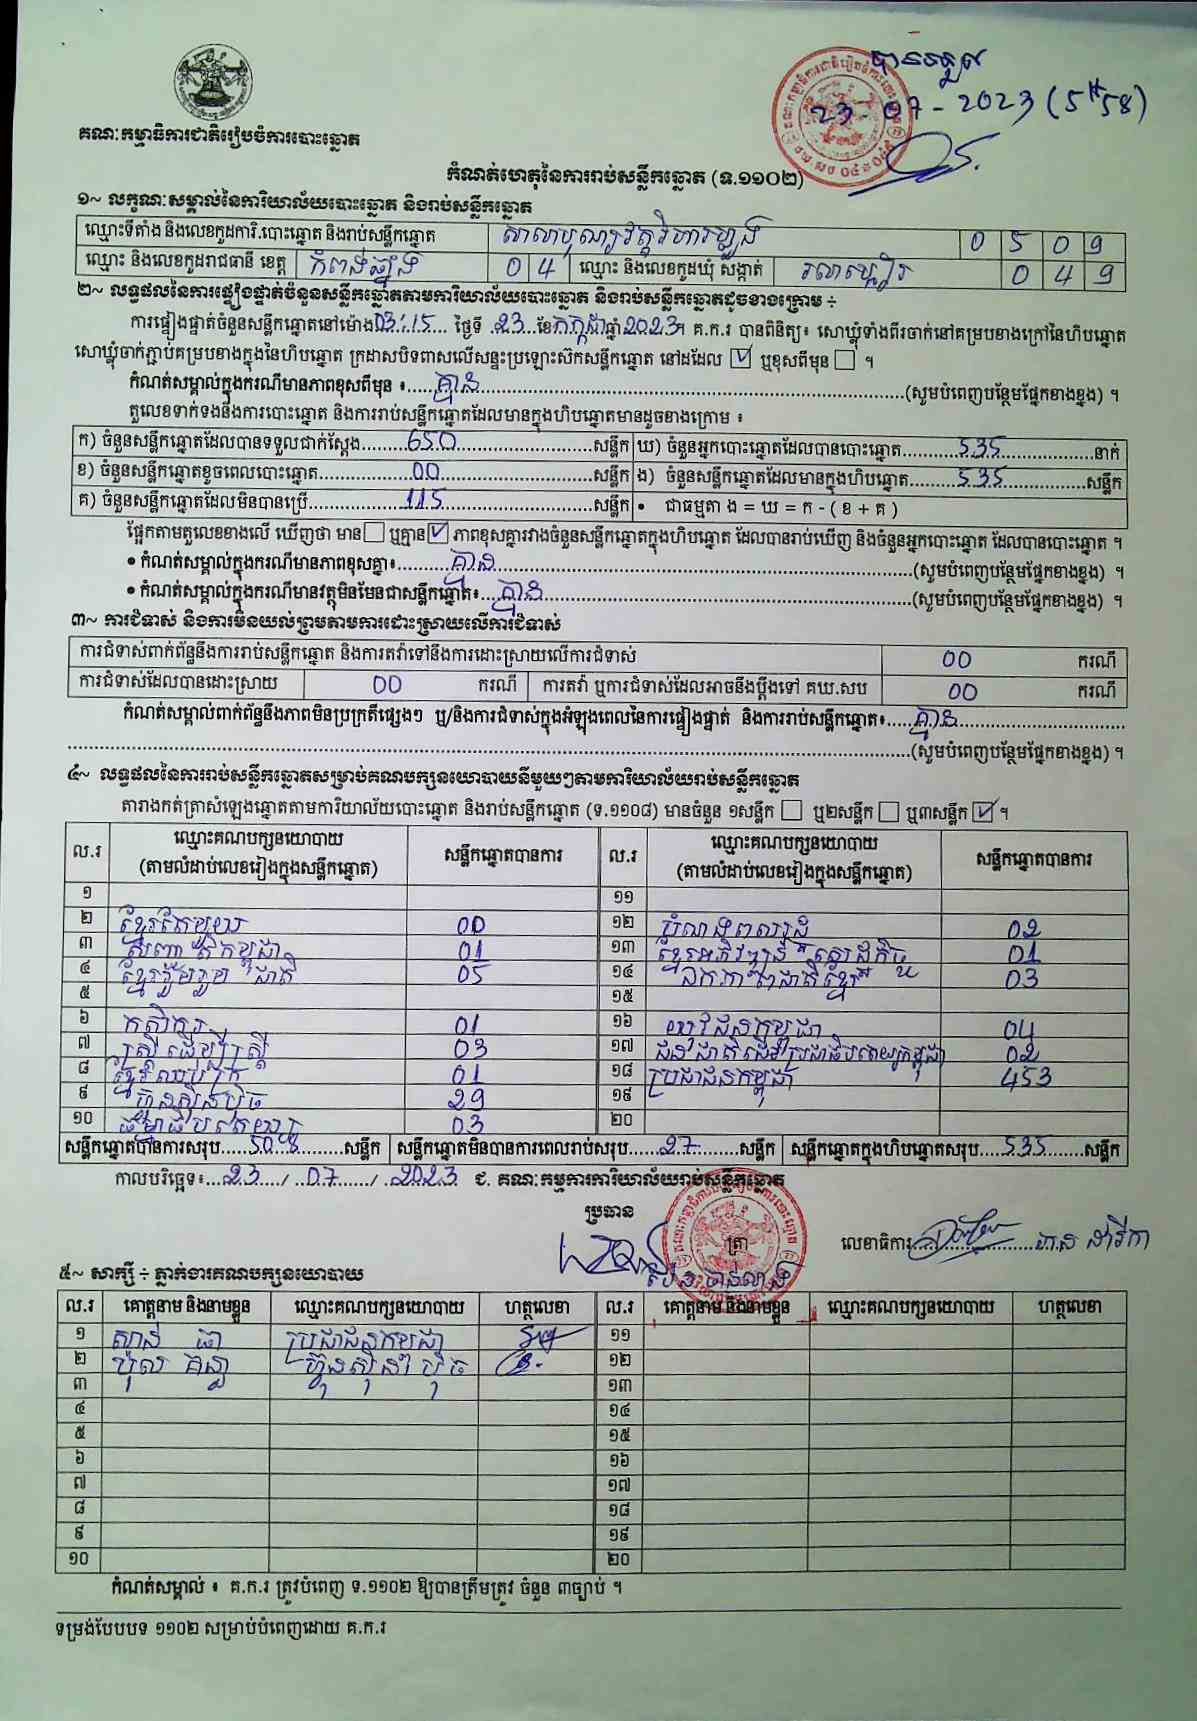 បានទទួល
23-07-2023 (5H58)
គណៈកម្មាធិការជាតិរៀបចំការបោះឆ្នោត
កំណត់ហេតុនៃការរាប់សន្លឹកឆ្នោត (ទ.១១០២)
១~ លក្ខណៈសម្គាល់នៃការិយាល័យបោះឆ្នោត និងរាប់សន្លឹកឆ្នោត
ឈ្មោះទីតាំង និងលេខកូដការិ.បោះឆ្នោត និងរាប់សន្លឹកឆ្នោត 0 5 0 9
ឈ្មោះ និងលេខកូដរាជធានី ខេត្ត កំពង់ឆ្នាំង 0 4 ឈ្មោះ និងលេខកូដឃុំ សង្កាត់ រលាប្អៀរ 0 4 9
២~ លទ្ធផលនៃការផ្ទៀងផ្ទាត់ចំនួនសន្លឹកឆ្នោតតាមការិយាល័យបោះឆ្នោត និងរាប់សន្លឹកឆ្នោតដូចខាងក្រោម ÷
ការផ្ទៀងផ្ទាត់ចំនួនសន្លឹកឆ្នោតនៅម៉ោង 03:15 ថ្ងៃទី 23 ខែ កក្កដា ឆ្នាំ 2023។ គ.ក.រ បានពិនិត្យ៖ សោឃ្លុំទាំងពីរចាក់នៅគម្របខាងក្រៅនៃហិបឆ្នោត
សោឃ្លុំចាក់ភ្ជាប់គម្របខាងក្នុងនៃហិបឆ្នោត ក្រដាសបិទពាសលើសន្ទះប្រឡោះស៊កសន្លឹកឆ្នោត នៅដដែល ☑ ឬខុសពីមុន ☐ ។
កំណត់សម្គាល់ក្នុងករណីមានភាពខុសពីមុន ៖ គ្មាន (សូមបំពេញបន្ថែមផ្នែកខាងខ្នង) ។
តួលេខទាក់ទងនឹងការបោះឆ្នោត និងការរាប់សន្លឹកឆ្នោតដែលមានក្នុងហិបឆ្នោតមានដូចខាងក្រោម ៖
ក) ចំនួនសន្លឹកឆ្នោតដែលបានទទួលជាក់ស្តែង 650 សន្លឹក ឃ) ចំនួនអ្នកបោះឆ្នោតដែលបានបោះឆ្នោត 535 នាក់
ខ) ចំនួនសន្លឹកឆ្នោតខូចពេលបោះឆ្នោត 00 សន្លឹក ង) ចំនួនសន្លឹកឆ្នោតដែលមានក្នុងហិបឆ្នោត 535 សន្លឹក
គ) ចំនួនសន្លឹកឆ្នោតដែលមិនបានប្រើ 115 សន្លឹក • ជាធម្មតា ង = ឃ = ក - ( ខ + គ )
ផ្អែកតាមតួលេខខាងលើ ឃើញថា មាន ☐ ឬគ្មាន ☑ ភាពខុសគ្នារវាងចំនួនសន្លឹកឆ្នោតក្នុងហិបឆ្នោត ដែលបានរាប់ឃើញ និងចំនួនអ្នកបោះឆ្នោត ដែលបានបោះឆ្នោត ។
• កំណត់សម្គាល់ក្នុងករណីមានភាពខុសគ្នា៖ គ្មាន (សូមបំពេញបន្ថែមផ្នែកខាងខ្នង) ។
• កំណត់សម្គាល់ក្នុងករណីមានវត្ថុមិនមែនជាសន្លឹកឆ្នោត៖ គ្មាន (សូមបំពេញបន្ថែមផ្នែកខាងខ្នង) ។
៣~ ការជំទាស់ និងការមិនយល់ព្រមតាមការដោះស្រាយលើការជំទាស់
ការជំទាស់ពាក់ព័ន្ធនឹងការរាប់សន្លឹកឆ្នោត និងការតវ៉ាទៅនឹងការដោះស្រាយលើការជំទាស់ 00 ករណី
ការជំទាស់ដែលបានដោះស្រាយ 00 ករណី ការតវ៉ា ឬការជំទាស់ដែលអាចនឹងប្ដឹងទៅ គឃ.សប 00 ករណី
កំណត់សម្គាល់ពាក់ព័ន្ធនឹងភាពមិនប្រក្រតីផ្សេងៗ ឬ/និងការជំទាស់ក្នុងអំឡុងពេលនៃការផ្ទៀងផ្ទាត់ និងការរាប់សន្លឹកឆ្នោត៖ គ្មាន
(សូមបំពេញបន្ថែមផ្នែកខាងខ្នង) ។
៤~ លទ្ធផលនៃការរាប់សន្លឹកឆ្នោតសម្រាប់គណបក្សនយោបាយនីមួយៗតាមការិយាល័យរាប់សន្លឹកឆ្នោត
តារាងកត់ត្រាសំឡេងឆ្នោតតាមការិយាល័យបោះឆ្នោត និងរាប់សន្លឹកឆ្នោត (ទ.១១០៨) មានចំនួន ១សន្លឹក ☐ ឬ២សន្លឹក ☐ ឬ៣សន្លឹក ☑ ។
ល.រ ឈ្មោះគណបក្សនយោបាយ (តាមលំដាប់លេខរៀងក្នុងសន្លឹកឆ្នោត) សន្លឹកឆ្នោតបានការ ល.រ ឈ្មោះគណបក្សនយោបាយ (តាមលំដាប់លេខរៀងក្នុងសន្លឹកឆ្នោត) សន្លឹកឆ្នោតបានការ
១ ១១
២ ខ្មែរតែមួយ 00 ១២ បំណងពលរដ្ឋ 02
៣ សញ្ជាតិកម្ពុជា 01 ១៣ ខ្មែរអភិវឌ្ឍន៍សេដ្ឋកិច្ច 01
៤ ខ្មែររួបរួមជាតិ 05 ១៤ ឯកភាពជាតិខ្មែរ 03
៥ ១៥
៦ កសិករ 01 ១៦ យុវជនកម្ពុជា 04
៧ ស្រ្តីដើម្បីស្រ្តី 03 ១៧ ជនជាតិដើមប្រជាធិបតេយ្យកម្ពុជា 02
៨ ខ្មែរឈប់ក្រ 01 ១៨ ប្រជាជនកម្ពុជា 453
៩ ហ្វ៊ុនស៊ិនប៉ិច 29 ១៩
១០ ធម្មាធិបតេយ្យ 03 ២០
សន្លឹកឆ្នោតបានការសរុប 508 សន្លឹក សន្លឹកឆ្នោតមិនបានការពេលរាប់សរុប 27 សន្លឹក សន្លឹកឆ្នោតក្នុងហិបឆ្នោតសរុប 535 សន្លឹក
កាលបរិច្ឆេទ៖ 23 / 07 / 2023 ជ. គណៈកម្មការការិយាល័យរាប់សន្លឹកឆ្នោត
ប្រធាន
ត្រា
លេខាធិការ
៥~ សាក្សី ÷ ភ្នាក់ងារគណបក្សនយោបាយ
ល.រ គោត្តនាម និងនាមខ្លួន ឈ្មោះគណបក្សនយោបាយ ហត្ថលេខា ល.រ គោត្តនាម និងនាមខ្លួន ឈ្មោះគណបក្សនយោបាយ ហត្ថលេខា
១ ប្រជាជនកម្ពុជា ១១
២ ហ្វ៊ុនស៊ិនប៉ិច ១២
៣ ១៣
៤ ១៤
៥ ១៥
៦ ១៦
៧ ១៧
៨ ១៨
៩ ១៩
១០ ២០
កំណត់សម្គាល់ ៖ គ.ក.រ ត្រូវបំពេញ ទ.១១០២ ឱ្យបានត្រឹមត្រូវ ចំនួន ៣ច្បាប់ ។
ទម្រង់បែបបទ ១១០២ សម្រាប់បំពេញដោយ គ.ក.រ